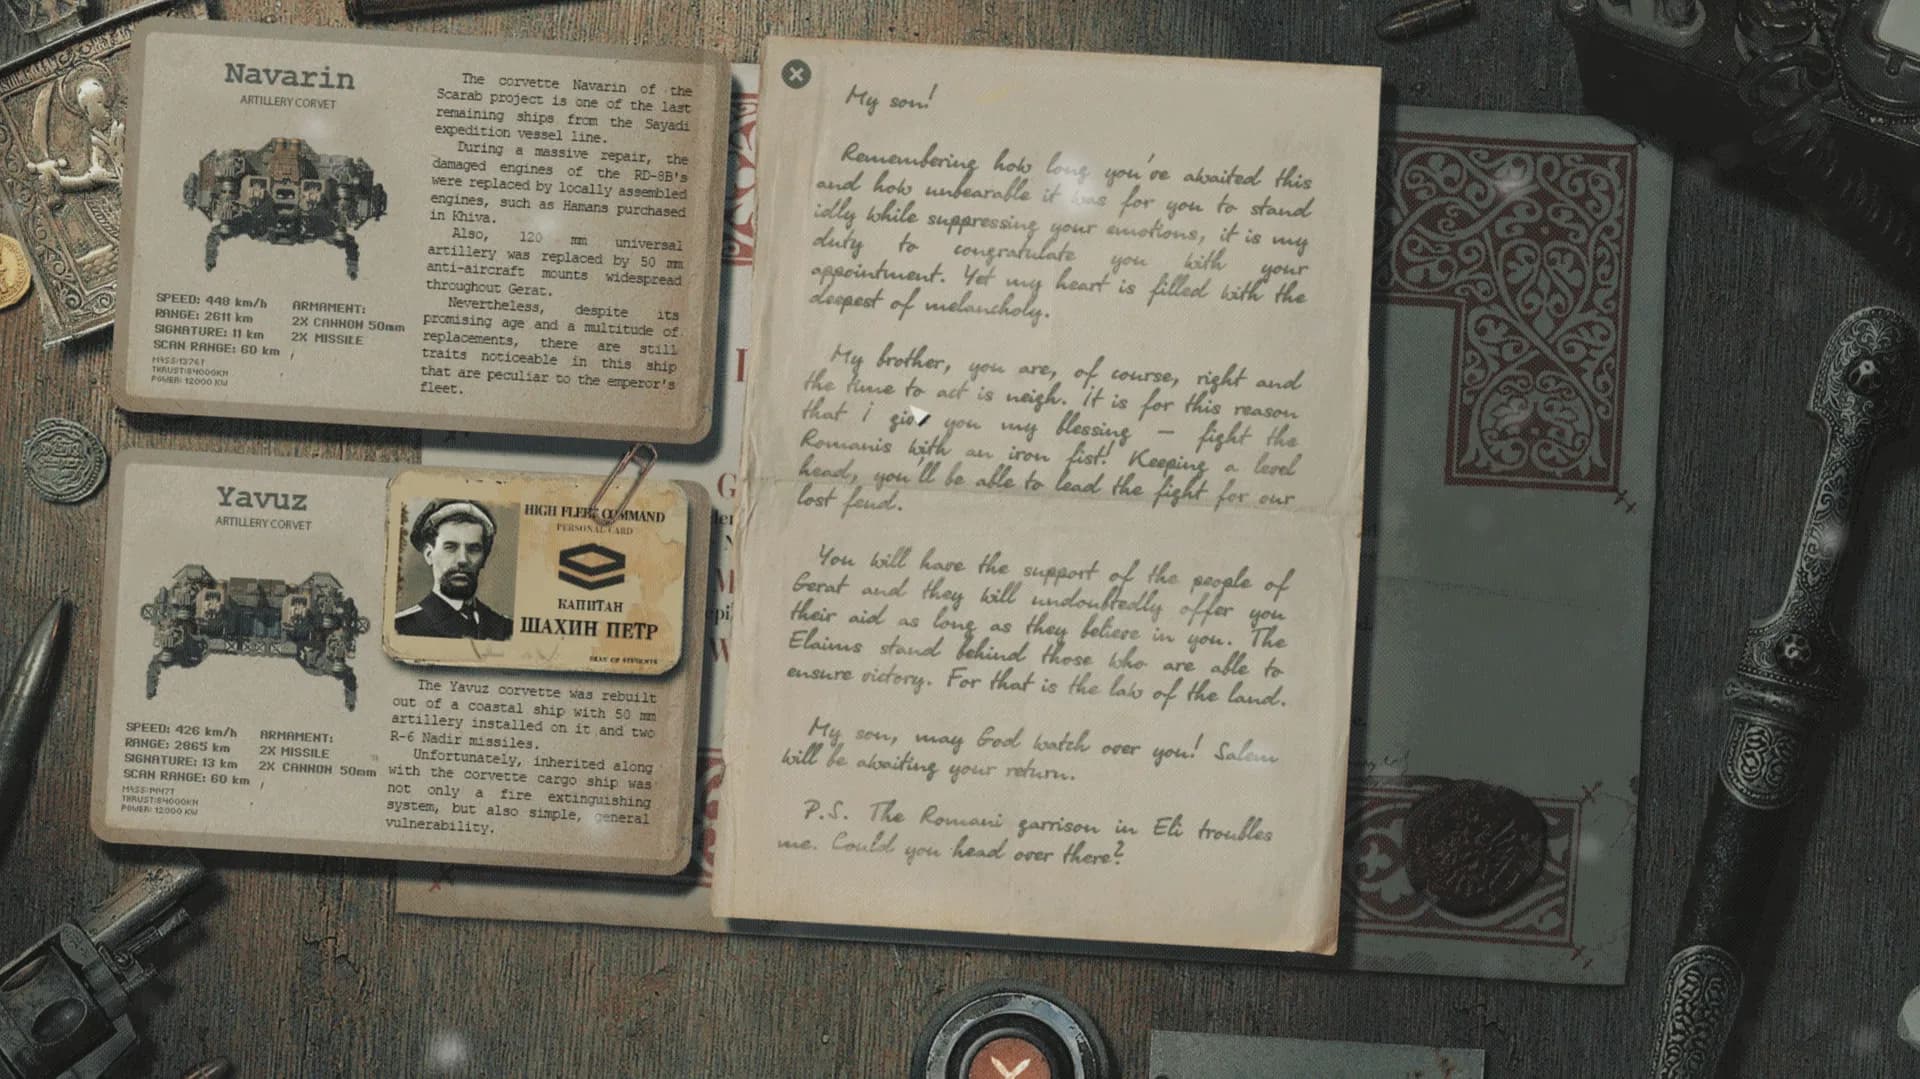 Navarin
ARTILLERY CORVET
The corvette Navarin of the
Scarab project is one of the last
remaining ships from the Sayadi
expedition vessel line.
During a massive repair, the
damaged engines of the RD-8B's
were replaced by locally assembled
engines, such as Hamans purchased
in Khiva.
Also, 120 mm universal
artillery was replaced by 50 mm
anti-aircraft mounts widespread
throughout Gerat.
Nevertheless, despite its
promising age and a multitude of
replacements, there are still
traits noticeable in this ship
that are peculiar to the emperor's
fleet.
SPEED: 448 km/h
RANGE: 2611 km
SIGNATURE: 11 km
SCAN RANGE: 60 km
MASS:1376T
THRUST:84000KN
POWER: 12000 KW
ARMAMENT:
2X CANNON 50mm
2X MISSILE
Yavuz
ARTILLERY CORVET
HIGH FLEET COMMAND
PERSONAL CARD
КАПИТАН
ШАХИН ПЕТР
The Yavuz corvette was rebuilt
out of a coastal ship with 50 mm
artillery installed on it and two
R-6 Nadir missiles.
Unfortunately, inherited along
with the corvette cargo ship was
not only a fire extinguishing
system, but also simple, general
vulnerability.
SPEED: 426 km/h
RANGE: 2665 km
SIGNATURE: 13 km
SCAN RANGE: 60 km
MASS:1447T
THRUST:84000KN
POWER: 12000 KW
ARMAMENT:
2X MISSILE
2X CANNON 50mm
My son!
Remembering how long you've awaited this
and how unbearable it was for you to stand
idly while suppressing your emotions, it is my
duty to congratulate you with your
appointment. Yet my heart is filled with the
deepest of melancholy.
My brother, you are, of course, right and
the time to act is neigh. It is for this reason
that I give you my blessing — fight the
Romanis with an iron fist! Keeping a level
head, you'll be able to lead the fight for our
lost feud.
You will have the support of the people of
Gerat and they will undoubtedly offer you
their aid as long as they believe in you. The
Elaims stand behind those who are able to
ensure victory. For that is the law of the land.
My son, may God watch over you! Salem
will be awaiting your return.
P.S. The Romani garrison in Eli troubles
me. Could you head over there?